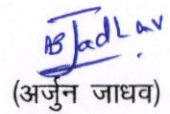 AB Jadhav
(अर्जुन जाधव)